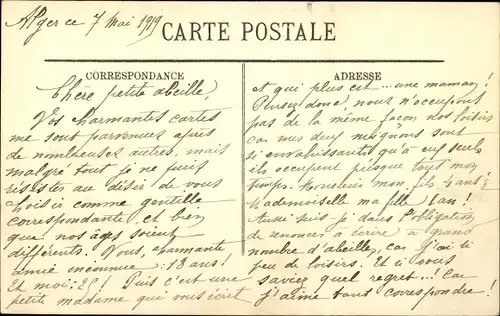 Alger ce 7 Mai 1919
CARTE POSTALE
CORRESPONDANCE
Chère petite abeille,
Vos charmantes cartes
me sont parvenues après
de nombreuses autres, mais
malgré tout je ne puis
résister au désir de vous
choisir comme gentille
correspondante et bien
que nos âges soient
différents! Vous, charmante
amie inconnue: 18 ans!
Et moi: ! Puis c'est une
petite madame qui vous écrit
ADRESSE
et qui plus est... une maman!
Pensez donc, nous n'occupons
pas de la même façon nos loisirs
car mes deux mignons sont
si envahissants qu'à eux seuls
ils occupent presque tout mon
temps. Monsieur mon fils 4 ans ½
Mademoiselle ma fille 1 an!
Aussi suis-je dans l'obligation
de renoncer à écrire à grand
nombre d'abeilles, car j'ai si
peu de loisirs. Et si vous
saviez quel regret...! Car
j'aime tant correspondre!